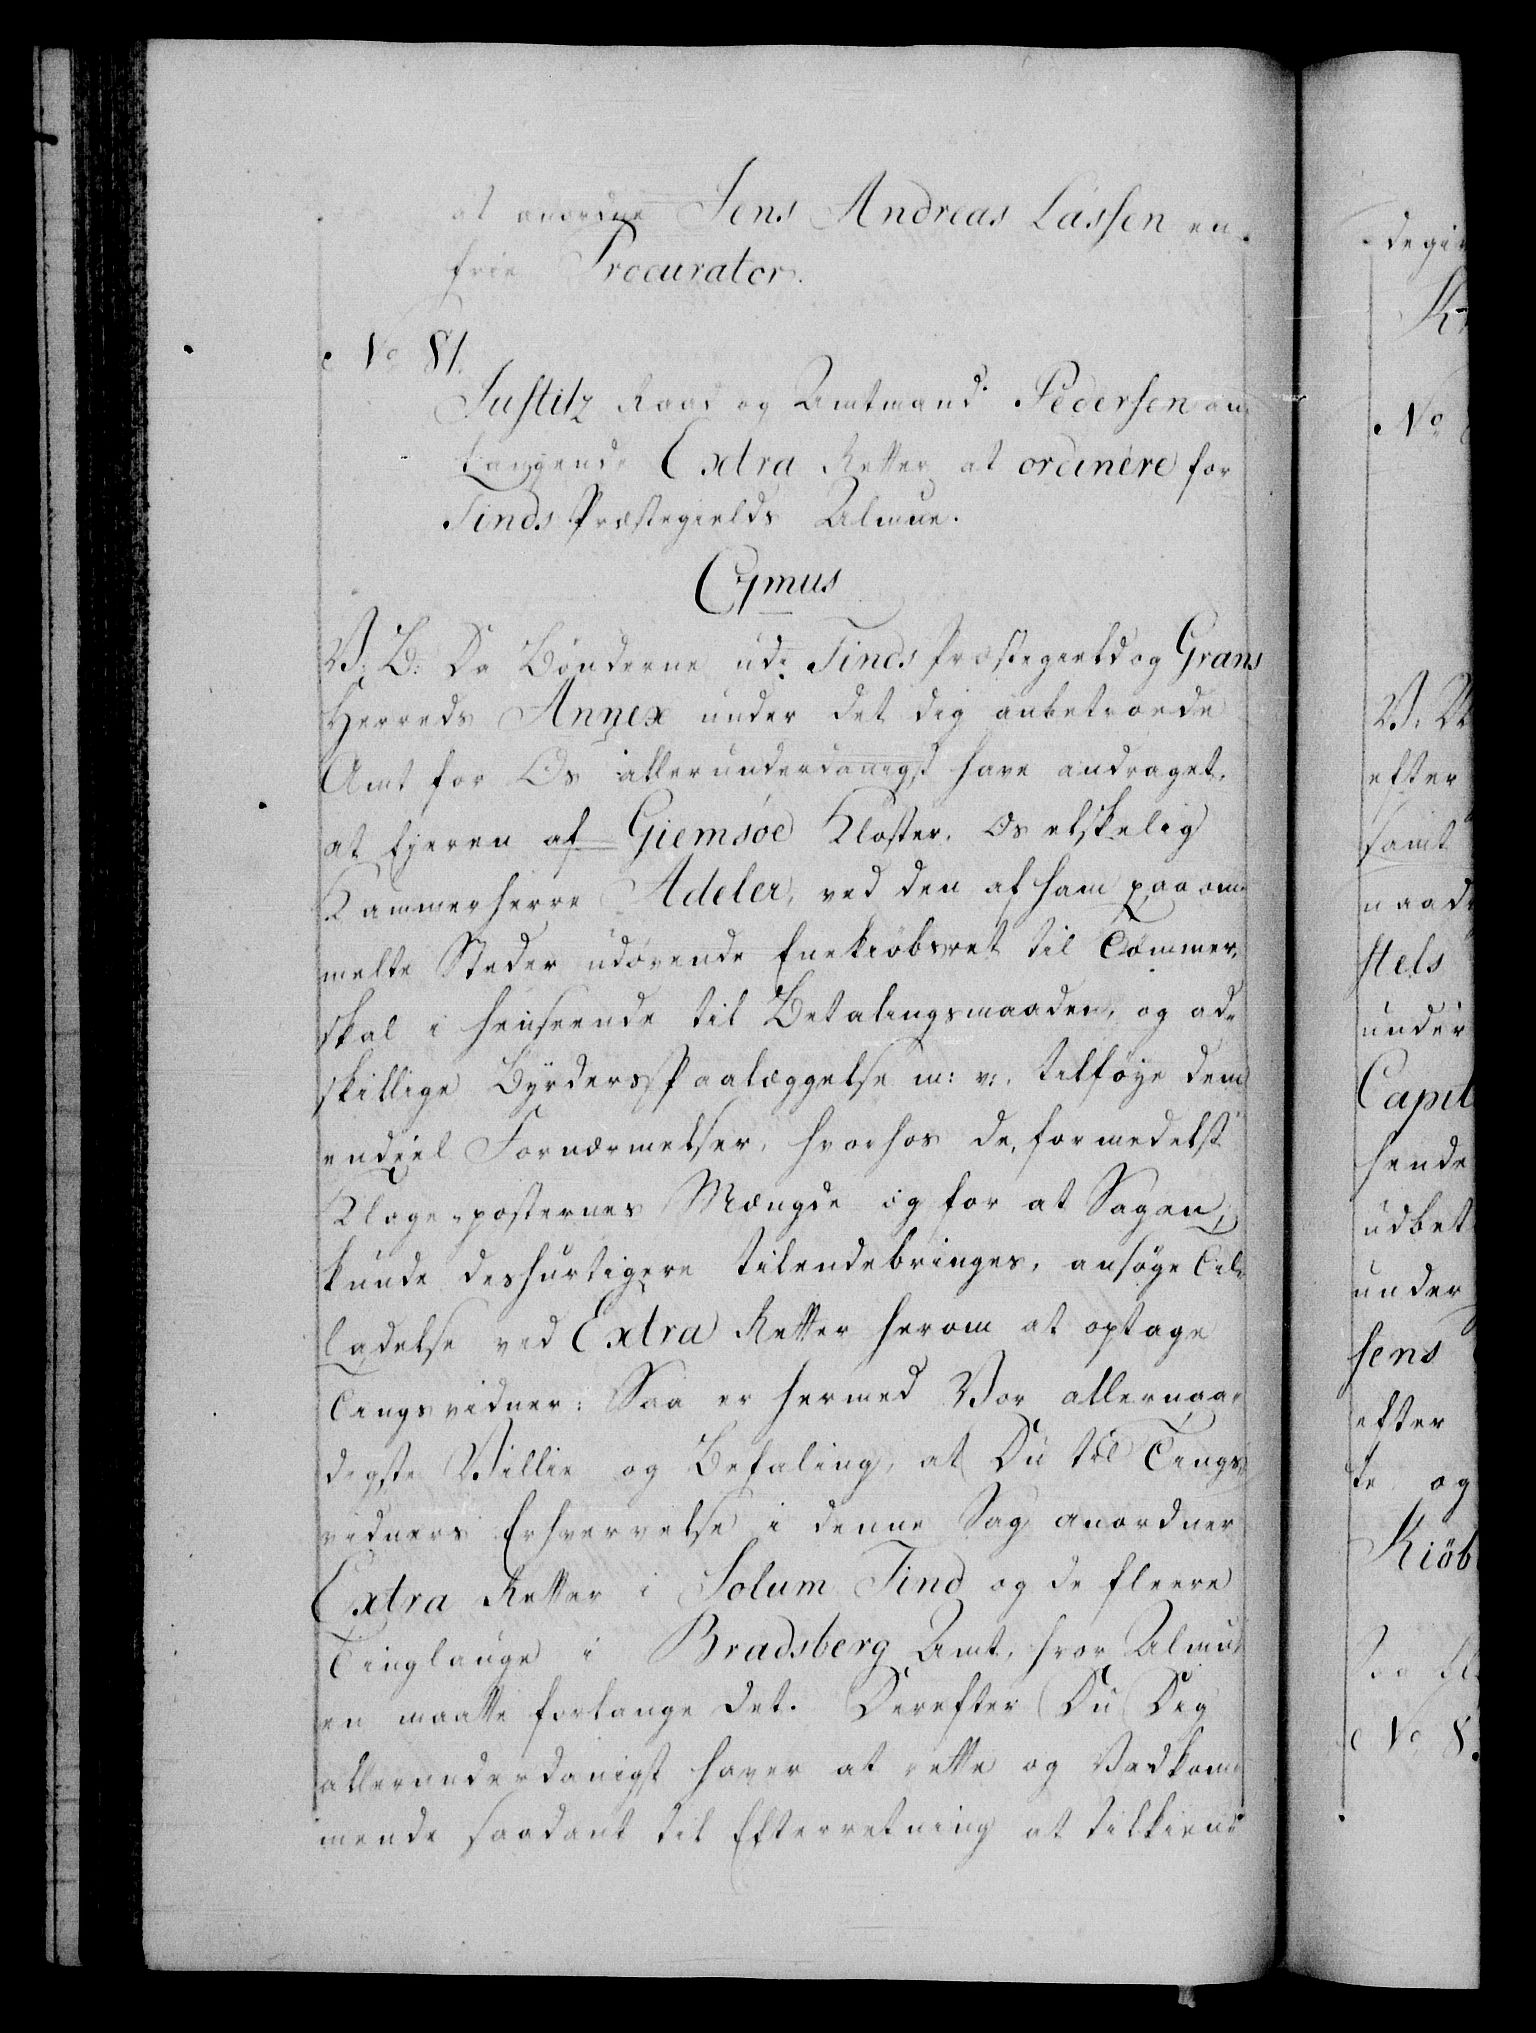 at anordne Jens Andreas Lassen en
frie Procurator.
No 81.
Justitz Raad og Amtmand Pedersen an¬
langende Extra Retter at ordinere for
Tinds Præstegields Almue.
C7mus
V: B: Da Bönderne udi Tinds Præstegield og Grans
Herreds Annex under det dig anbetroede
Amt for Os allerunderdanigst have andraget,
at Ejeren af Giemsöe Kloster, Os elskelig
Kammerherre Adeler, ved den af ham paa om¬
melte Steder udövende Enekiöbsret til Tömmer,
skal i henseende til Betalingsmaaden, og ad¬
skillige Byrders Paalæggelse m: v:, tilföye dem
endeel Fornærmelser, hvorhos de, formedelst
Klage-posternes Mængde og for at Sagen,
kunde deshurtigere tilendebringes, ansöge Til¬
ladelse ved Extra Retter herom at optage
Tingsvidner: Saa er hermed Vor allernaa¬
digste Villie og Befaling, at Du til Tings¬
vidners Erhvervelse i denne Sag anordner
Extra Retter i Solum Tind og de fleere
Tinglauge i Bradsberg Amt, hvor Almu¬
en maatte forlange det. Derefter Du Dig
allerunderdanigst haver at rette og Vedkom¬
mende saadant til Efterretning at tilkiende
degi
K
No
V. V
efter
samt
naad
stels
under
Capit
hende
udbet
under
sens
efter
te og
Kiöb
No 8